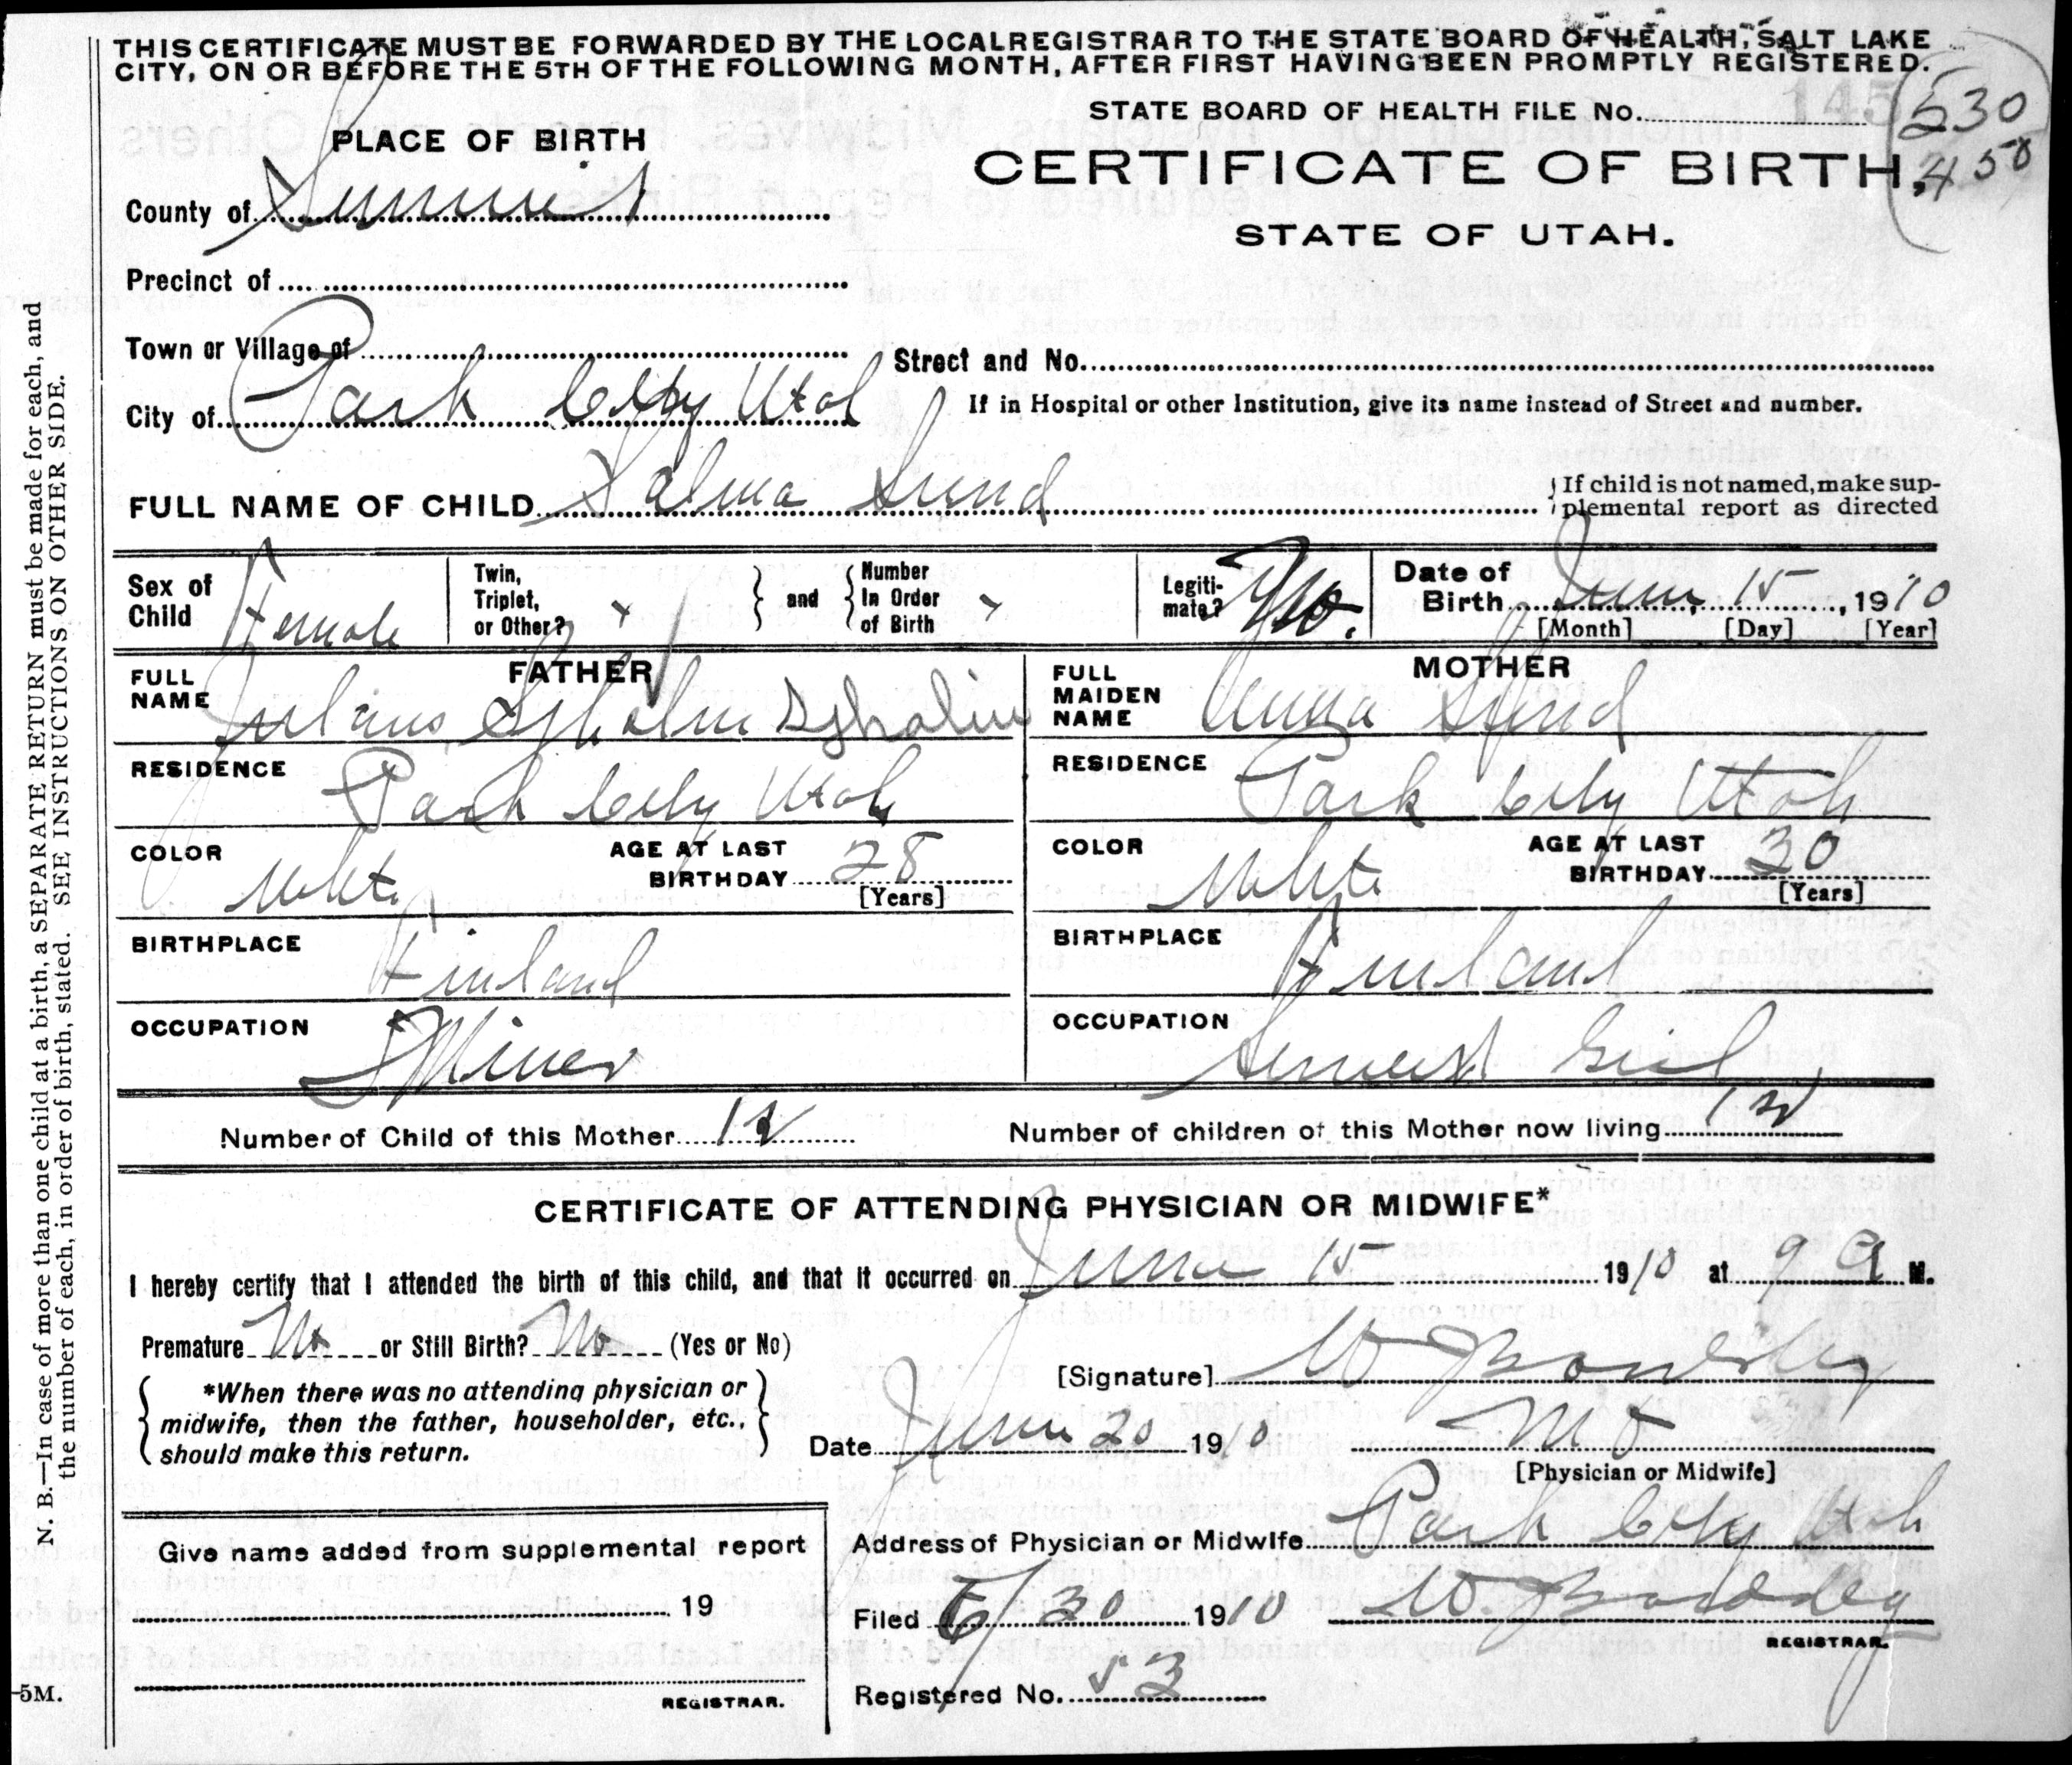 THIS CERTIFICATE MUST BE FORWARDED BY THE LOCAL REGISTRAR TO THE STATE BOARD OF HEALTH, SALT LAKE
CITY, ON OR BEFORE THE 5TH OF THE FOLLOWING MONTH, AFTER FIRST HAVING BEEN PROMPTLY REGISTERED.
STATE BOARD OF HEALTH FILE No. 145
530
450
PLACE OF BIRTH
CERTIFICATE OF BIRTH.
STATE OF UTAH.
County of Summit
Precinct of
Town or Village of
Street and No.
City of Park City Utah
If in Hospital or other Institution, give its name instead of Street and number.
FULL NAME OF CHILD Salma Sund
If child is not named, make sup-
plemental report as directed
Sex of Child Female
Twin, Triplet, or Other? x and Number In Order of Birth x
Legiti-mate? No.
Date of Birth June 15, 1910
[Month] [Day] [Year]
FATHER
FULL NAME Julius Sjholm Sjholm
RESIDENCE Park City Utah
COLOR White
AGE AT LAST BIRTHDAY 28
[Years]
BIRTHPLACE Finland
OCCUPATION Miner
MOTHER
FULL MAIDEN NAME Anna Sund
RESIDENCE Park City Utah
COLOR White
AGE AT LAST BIRTHDAY 30
[Years]
BIRTHPLACE Finland
OCCUPATION Servant Girl
Number of Child of this Mother 1st
Number of children of this Mother now living 1st
CERTIFICATE OF ATTENDING PHYSICIAN OR MIDWIFE*
I hereby certify that I attended the birth of this child, and that it occurred on June 15 1910 at 9 A M.
Premature No or Still Birth? No (Yes or No)
*When there was no attending physician or
midwife, then the father, householder, etc.,
should make this return.
[Signature] W
Date June 20 1910
MD
[Physician or Midwife]
Address of Physician or Midwife Park City Utah
Give name added from supplemental report
19
REGISTRAR.
Filed 6/30 1910 W.
REGISTRAR.
Registered No. 53
N. B.—In case of more than one child at a birth, a SEPARATE RETURN must be made for each, and
the number of each, in order of birth, stated. SEE INSTRUCTIONS ON OTHER SIDE.
-5M.